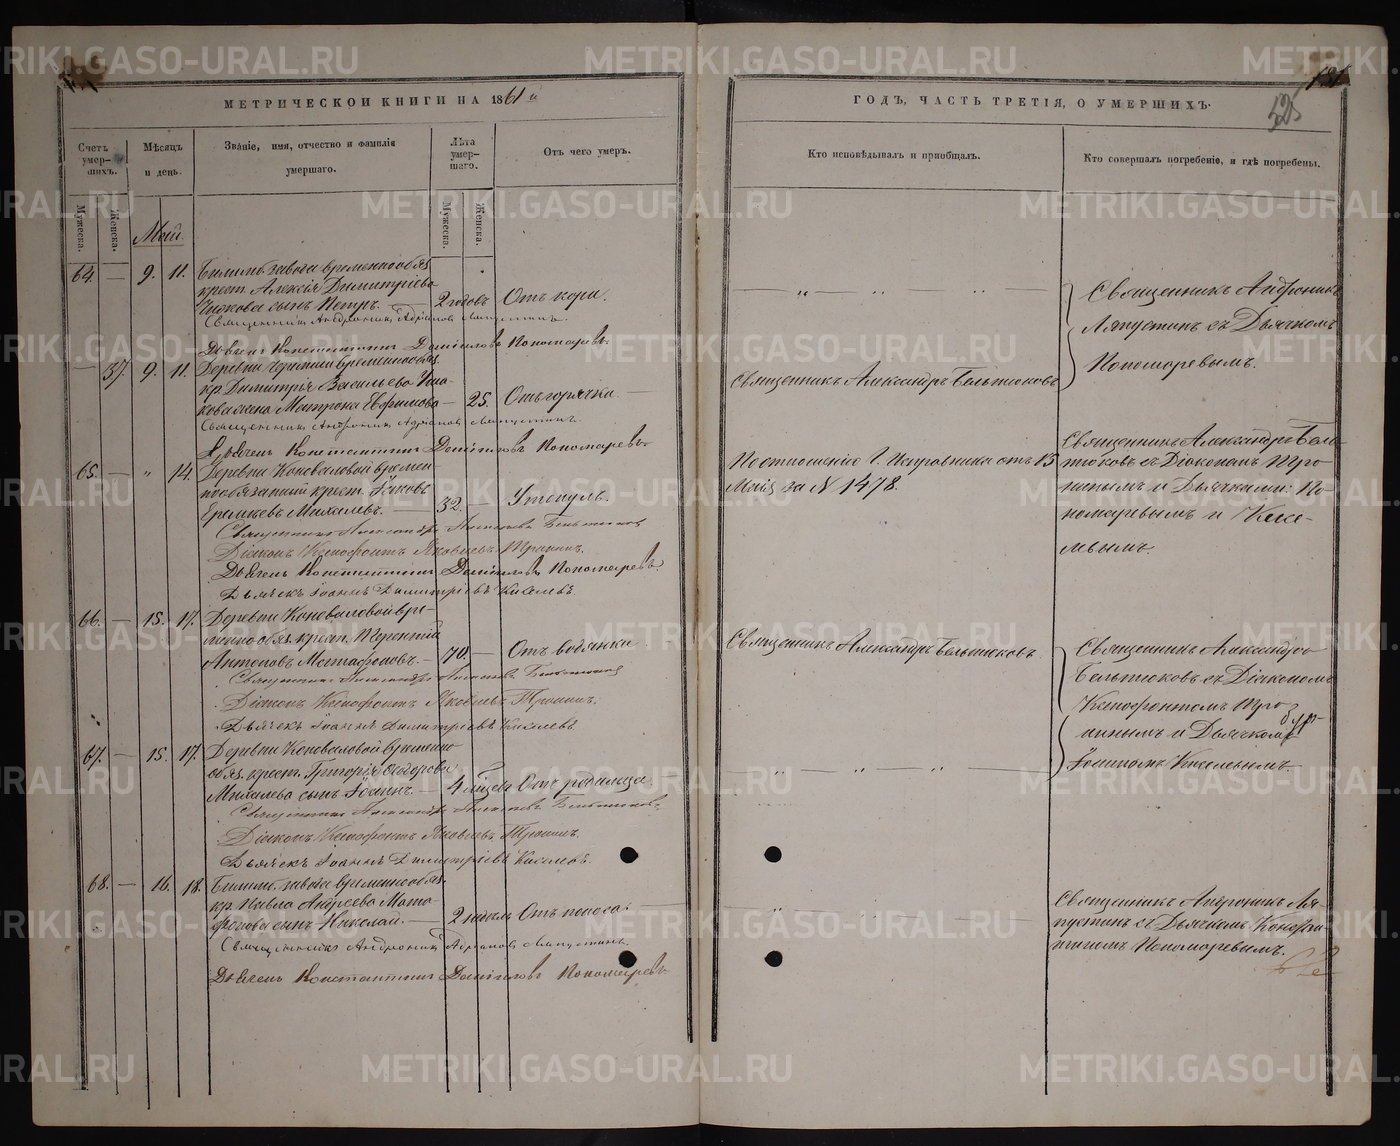 МЕТРИЧЕСКОЙ КНИГИ НА 1861й
ГОДЪ, ЧАСТЬ ТРЕТІЯ, О УМЕРШИХЪ.
181
525
Счетъ умер-шихъ.
Мужеска.
Женска.
Мѣсяцъ и день.
Званіе, имя, отчество и фамилія умершаго.
Лѣта умер-шаго.
Мужеска.
Женска.
Отъ чего умеръ.
Кто исповѣдывалъ и пріобщалъ.
Кто совершалъ погребеніе, и гдѣ погребены.
Май.
64. — 9. 11. Билимб. завода временнообяз.
крест. Алексія Димитріева
сынъ Петръ. 2 годовъ Отъ кори.
Священникъ Андроникъ Адріановъ Ляпустинъ.
Дьячекъ Константинъ Даніиловъ Пономаревъ.
Священникъ Андроникъ
Ляпустинъ съ Дьячкомъ
Пономаревымъ.
— 37. 9. 11. Деревни временнообяз.
кр. Димитрія Васильева Уша-
кова жена Матрона Евфимова — 25. Отъ горячки. —
Священникъ Андроникъ Адріановъ Ляпустинъ.
Дьячекъ Константинъ Даніиловъ Пономаревъ.
Священникъ Александръ Бельтюковъ
65. — " 14. Деревни Коноваловой времен-
нообязанный крест. Іяковъ
Еремѣевъ Михалевъ. — 32. — Утонулъ.
Священникъ Александръ Бельтюковъ
Діаконъ Ксенофонтъ Яковлевъ Тронинъ.
Дьячекъ Константинъ Даніиловъ Пономаревъ.
Дьячекъ Іоаннъ Димитріевъ Киселевъ.
По отношенію Г. Исправника отъ 13
Мая за N 1478.
Священникъ Александръ Бель-
тюковъ съ Діакономъ Тро-
нинымъ и Дьячками: По-
номаревымъ и Кисе-
левымъ.
66. — 15. 17. Деревни Коноваловой вре-
меннообяз. крест. Терентій
Антоновъ Мостафоновъ. — 70. — Отъ водянки.
Священникъ Александръ Бельтюковъ
Діаконъ Ксенофонтъ Яковлевъ Тронинъ.
Дьячекъ Іоаннъ Димитріевъ Киселевъ
Священникъ Александръ Бельтюковъ.
Священникъ Александръ
Бельтюковъ съ Діакономъ
Ксенофонтомъ Тро-
нинымъ и Дьячкомъ
Іоанномъ Киселевымъ.
67. — 15. 17. Деревни Коноваловой временно-
обяз. крест. Григорія Сидорова
Михалева сынъ Іоаннъ. 4 мѣсяц Отъ родимца
Священникъ Александръ Бельтюковъ.
Діаконъ Ксенофонтъ Яковлевъ Тронинъ.
Дьячекъ Іоаннъ Димитріевъ Киселевъ.
68. — 16. 18. Билимб. завода временнообяз.
кр. Павла Андреева Мата-
фонова сынъ Николай. — 2 годовъ Отъ поноса. —
Священникъ Андроникъ Адріановъ Ляпустинъ.
Дьячекъ Константинъ Даніиловъ Пономаревъ
Священникъ Андроникъ Ля-
пустинъ съ Дьячкомъ Констан-
тиномъ Пономаревымъ.
METRIKI.GASO-URAL.RU